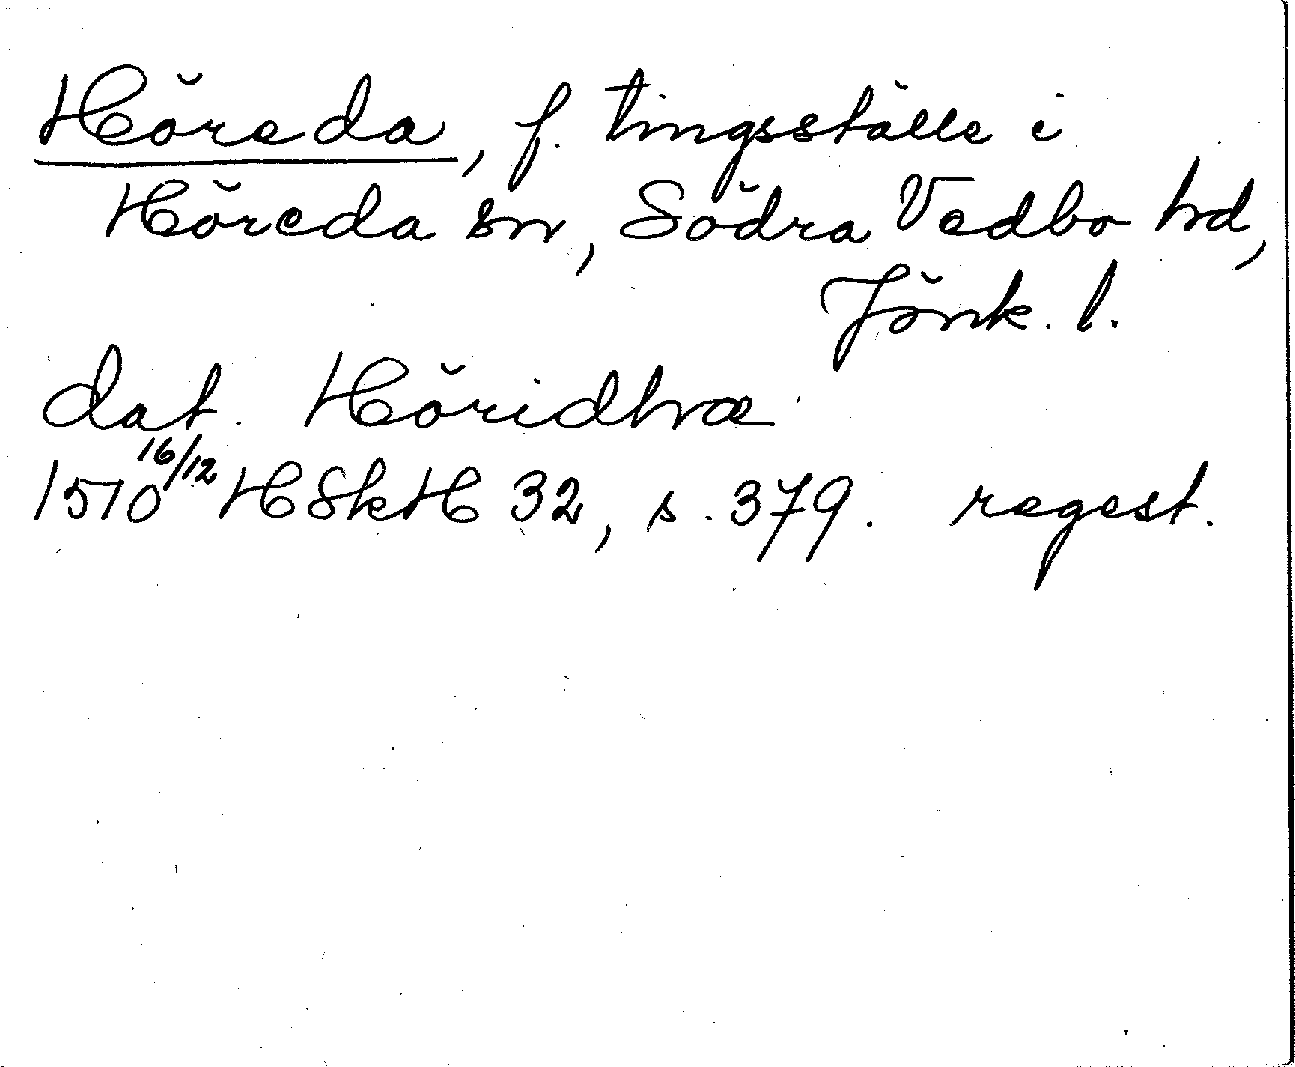 Höreda, f. tingsställe i
Höreda sn, Södra Vedbo hd,
Jönk. l.
dat. Höridhæ
1510 16/12 HSkH 32, s. 379. regest.